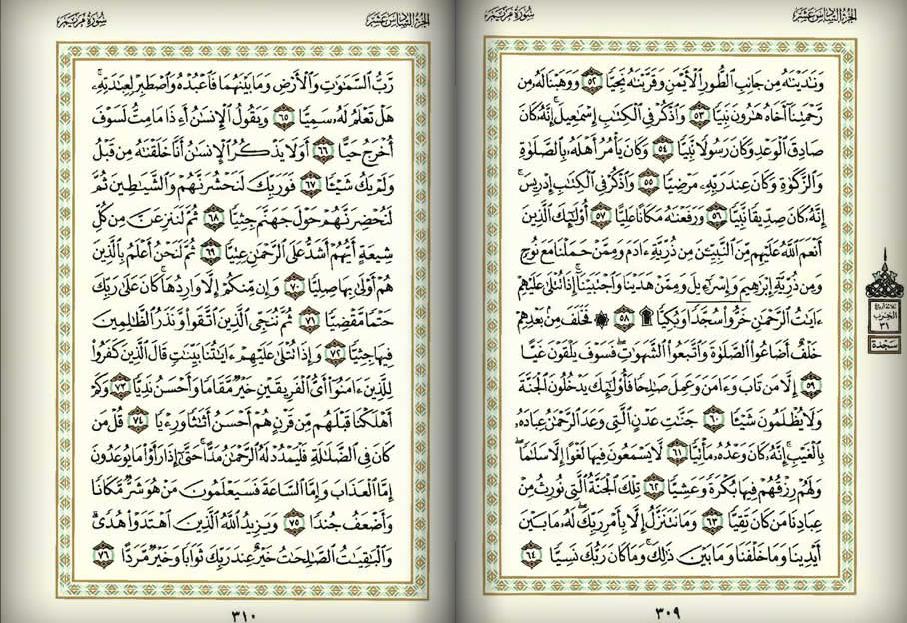 الجزء السادس عشر
سورة مريم
وَنَٰدَيْنَٰهُ مِن جَانِبِ ٱلطُّورِ ٱلْأَيْمَنِ وَقَرَّبْنَٰهُ نَجِيًّا ٥٢ وَوَهَبْنَا لَهُۥ مِن
رَّحْمَتِنَآ أَخَاهُ هَٰرُونَ نَبِيًّا ٥٣ وَٱذْكُرْ فِى ٱلْكِتَٰبِ إِسْمَٰعِيلَ ۚ إِنَّهُۥ كَانَ
صَادِقَ ٱلْوَعْدِ وَكَانَ رَسُولًا نَّبِيًّا ٥٤ وَكَانَ يَأْمُرُ أَهْلَهُۥ بِٱلصَّلَوٰةِ
وَٱلزَّكَوٰةِ وَكَانَ عِندَ رَبِّهِۦ مَرْضِيًّا ٥٥ وَٱذْكُرْ فِى ٱلْكِتَٰبِ إِدْرِيسَ ۚ
إِنَّهُۥ كَانَ صِدِّيقًا نَّبِيًّا ٥٦ وَرَفَعْنَٰهُ مَكَانًا عَلِيًّا ٥٧ أُو۟لَٰٓئِكَ ٱلَّذِينَ
أَنْعَمَ ٱللَّهُ عَلَيْهِم مِّنَ ٱلنَّبِيِّـۧنَ مِن ذُرِّيَّةِ ءَادَمَ وَمِمَّنْ حَمَلْنَا مَعَ نُوحٍ
وَمِن ذُرِّيَّةِ إِبْرَٰهِيمَ وَإِسْرَٰٓءِيلَ وَمِمَّنْ هَدَيْنَا وَٱجْتَبَيْنَآ ۚ إِذَا تُتْلَىٰ عَلَيْهِمْ
ءَايَٰتُ ٱلرَّحْمَٰنِ خَرُّوا۟ سُجَّدًا وَبُكِيًّا ۩ ٥٨ ۞ فَخَلَفَ مِنۢ بَعْدِهِمْ
خَلْفٌ أَضَاعُوا۟ ٱلصَّلَوٰةَ وَٱتَّبَعُوا۟ ٱلشَّهَوَٰتِ ۖ فَسَوْفَ يَلْقَوْنَ غَيًّا
٥٩ إِلَّا مَن تَابَ وَءَامَنَ وَعَمِلَ صَٰلِحًا فَأُو۟لَٰٓئِكَ يَدْخُلُونَ ٱلْجَنَّةَ
وَلَا يُظْلَمُونَ شَيْـًٔا ٦٠ جَنَّٰتِ عَدْنٍ ٱلَّتِى وَعَدَ ٱلرَّحْمَٰنُ عِبَادَهُۥ
بِٱلْغَيْبِ ۚ إِنَّهُۥ كَانَ وَعْدُهُۥ مَأْتِيًّا ٦١ لَّا يَسْمَعُونَ فِيهَا لَغْوًا إِلَّا سَلَٰمًا ۖ
وَلَهُمْ رِزْقُهُمْ فِيهَا بُكْرَةً وَعَشِيًّا ٦٢ تِلْكَ ٱلْجَنَّةُ ٱلَّتِى نُورِثُ مِنْ
عِبَادِنَا مَن كَانَ تَقِيًّا ٦٣ وَمَا نَتَنَزَّلُ إِلَّا بِأَمْرِ رَبِّكَ ۖ لَهُۥ مَا بَيْنَ
أَيْدِينَا وَمَا خَلْفَنَا وَمَا بَيْنَ ذَٰلِكَ ۚ وَمَا كَانَ رَبُّكَ نَسِيًّا ٦٤
الحزب
٣١
سجدة
٣٠٩
الجزء السادس عشر
سورة مريم
رَّبُّ ٱلسَّمَٰوَٰتِ وَٱلْأَرْضِ وَمَا بَيْنَهُمَا فَٱعْبُدْهُ وَٱصْطَبِرْ لِعِبَٰدَتِهِۦ ۚ
هَلْ تَعْلَمُ لَهُۥ سَمِيًّا ٦٥ وَيَقُولُ ٱلْإِنسَٰنُ أَءِذَا مَا مِتُّ لَسَوْفَ
أُخْرَجُ حَيًّا ٦٦ أَوَلَا يَذْكُرُ ٱلْإِنسَٰنُ أَنَّا خَلَقْنَٰهُ مِن قَبْلُ
وَلَمْ يَكُ شَيْـًٔا ٦٧ فَوَرَبِّكَ لَنَحْشُرَنَّهُمْ وَٱلشَّيَٰطِينَ ثُمَّ
لَنُحْضِرَنَّهُمْ حَوْلَ جَهَنَّمَ جِثِيًّا ٦٨ ثُمَّ لَنَنزِعَنَّ مِن كُلِّ
شِيعَةٍ أَيُّهُمْ أَشَدُّ عَلَى ٱلرَّحْمَٰنِ عِتِيًّا ٦٩ ثُمَّ لَنَحْنُ أَعْلَمُ بِٱلَّذِينَ
هُمْ أَوْلَىٰ بِهَا صِلِيًّا ٧٠ وَإِن مِّنكُمْ إِلَّا وَارِدُهَا ۚ كَانَ عَلَىٰ رَبِّكَ
حَتْمًا مَّقْضِيًّا ٧١ ثُمَّ نُنَجِّى ٱلَّذِينَ ٱتَّقَوا۟ وَّنَذَرُ ٱلظَّٰلِمِينَ
فِيهَا جِثِيًّا ٧٢ وَإِذَا تُتْلَىٰ عَلَيْهِمْ ءَايَٰتُنَا بَيِّنَٰتٍ قَالَ ٱلَّذِينَ كَفَرُوا۟
لِلَّذِينَ ءَامَنُوٓا۟ أَىُّ ٱلْفَرِيقَيْنِ خَيْرٌ مَّقَامًا وَأَحْسَنُ نَدِيًّا ٧٣ وَكَمْ
أَهْلَكْنَا قَبْلَهُم مِّن قَرْنٍ هُمْ أَحْسَنُ أَثَٰثًا وَرِءْيًا ٧٤ قُلْ مَن
كَانَ فِى ٱلضَّلَٰلَةِ فَلْيَمْدُدْ لَهُ ٱلرَّحْمَٰنُ مَدًّا ۚ حَتَّىٰٓ إِذَا رَأَوْا۟ مَا يُوعَدُونَ
إِمَّا ٱلْعَذَابَ وَإِمَّا ٱلسَّاعَةَ فَسَيَعْلَمُونَ مَنْ هُوَ شَرٌّ مَّكَانًا
وَأَضْعَفُ جُندًا ٧٥ وَيَزِيدُ ٱللَّهُ ٱلَّذِينَ ٱهْتَدَوْا۟ هُدًى ۗ
وَٱلْبَٰقِيَٰتُ ٱلصَّٰلِحَٰتُ خَيْرٌ عِندَ رَبِّكَ ثَوَابًا وَخَيْرٌ مَّرَدًّا ٧٦
٣١٠